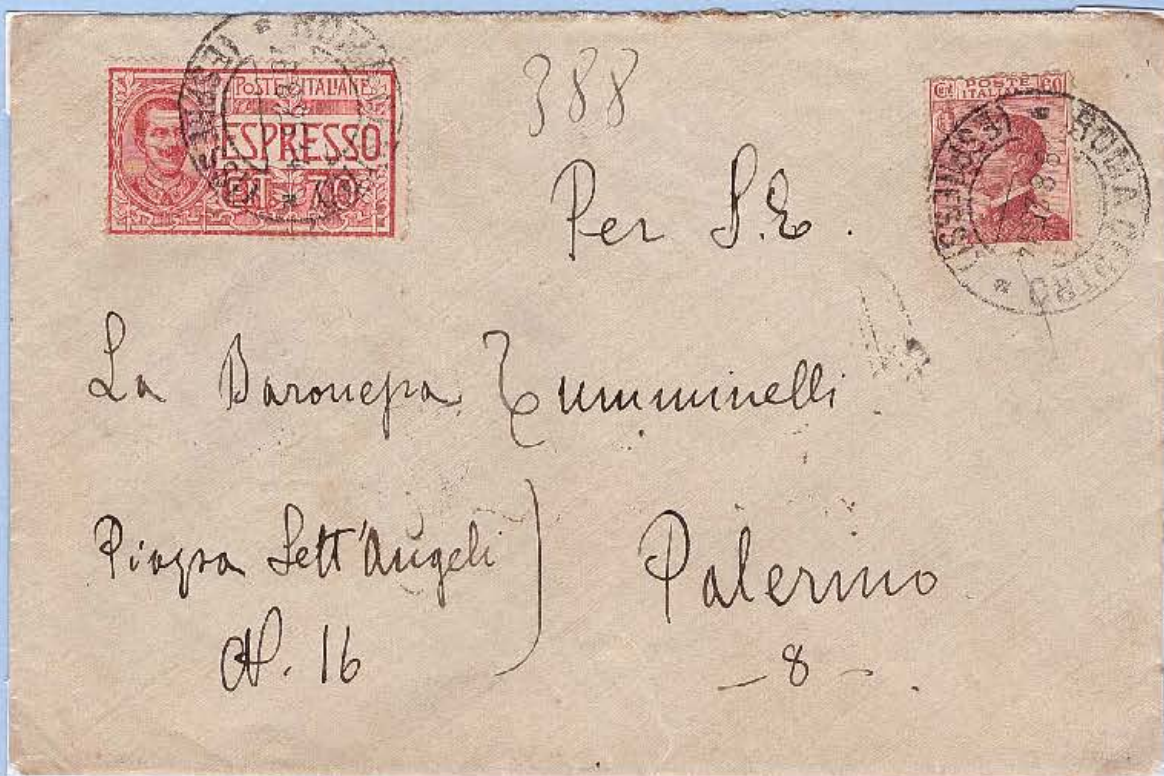 POSTE ITALIANE
ESPRESSO
388
POSTE
ITALIANE
Cent 60
ROMA CENTRO
(ESPRESSI)
Per S.E.
La Baronessa Tumminelli
Piazza Sett'Angeli
N. 16
Palermo
- 8 -